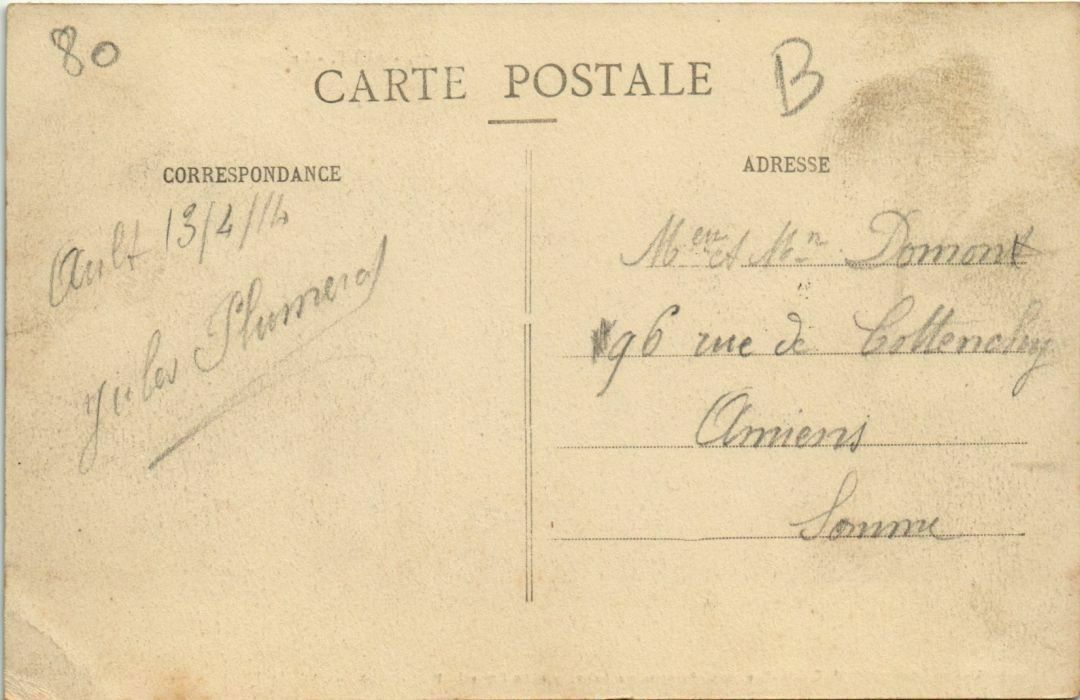 80
CARTE POSTALE
B
CORRESPONDANCE
Ault 13/4/14
Jules Plumerel
ADRESSE
Men et Mn Domont
96 rue de Cottenchy
Amiens
Somme